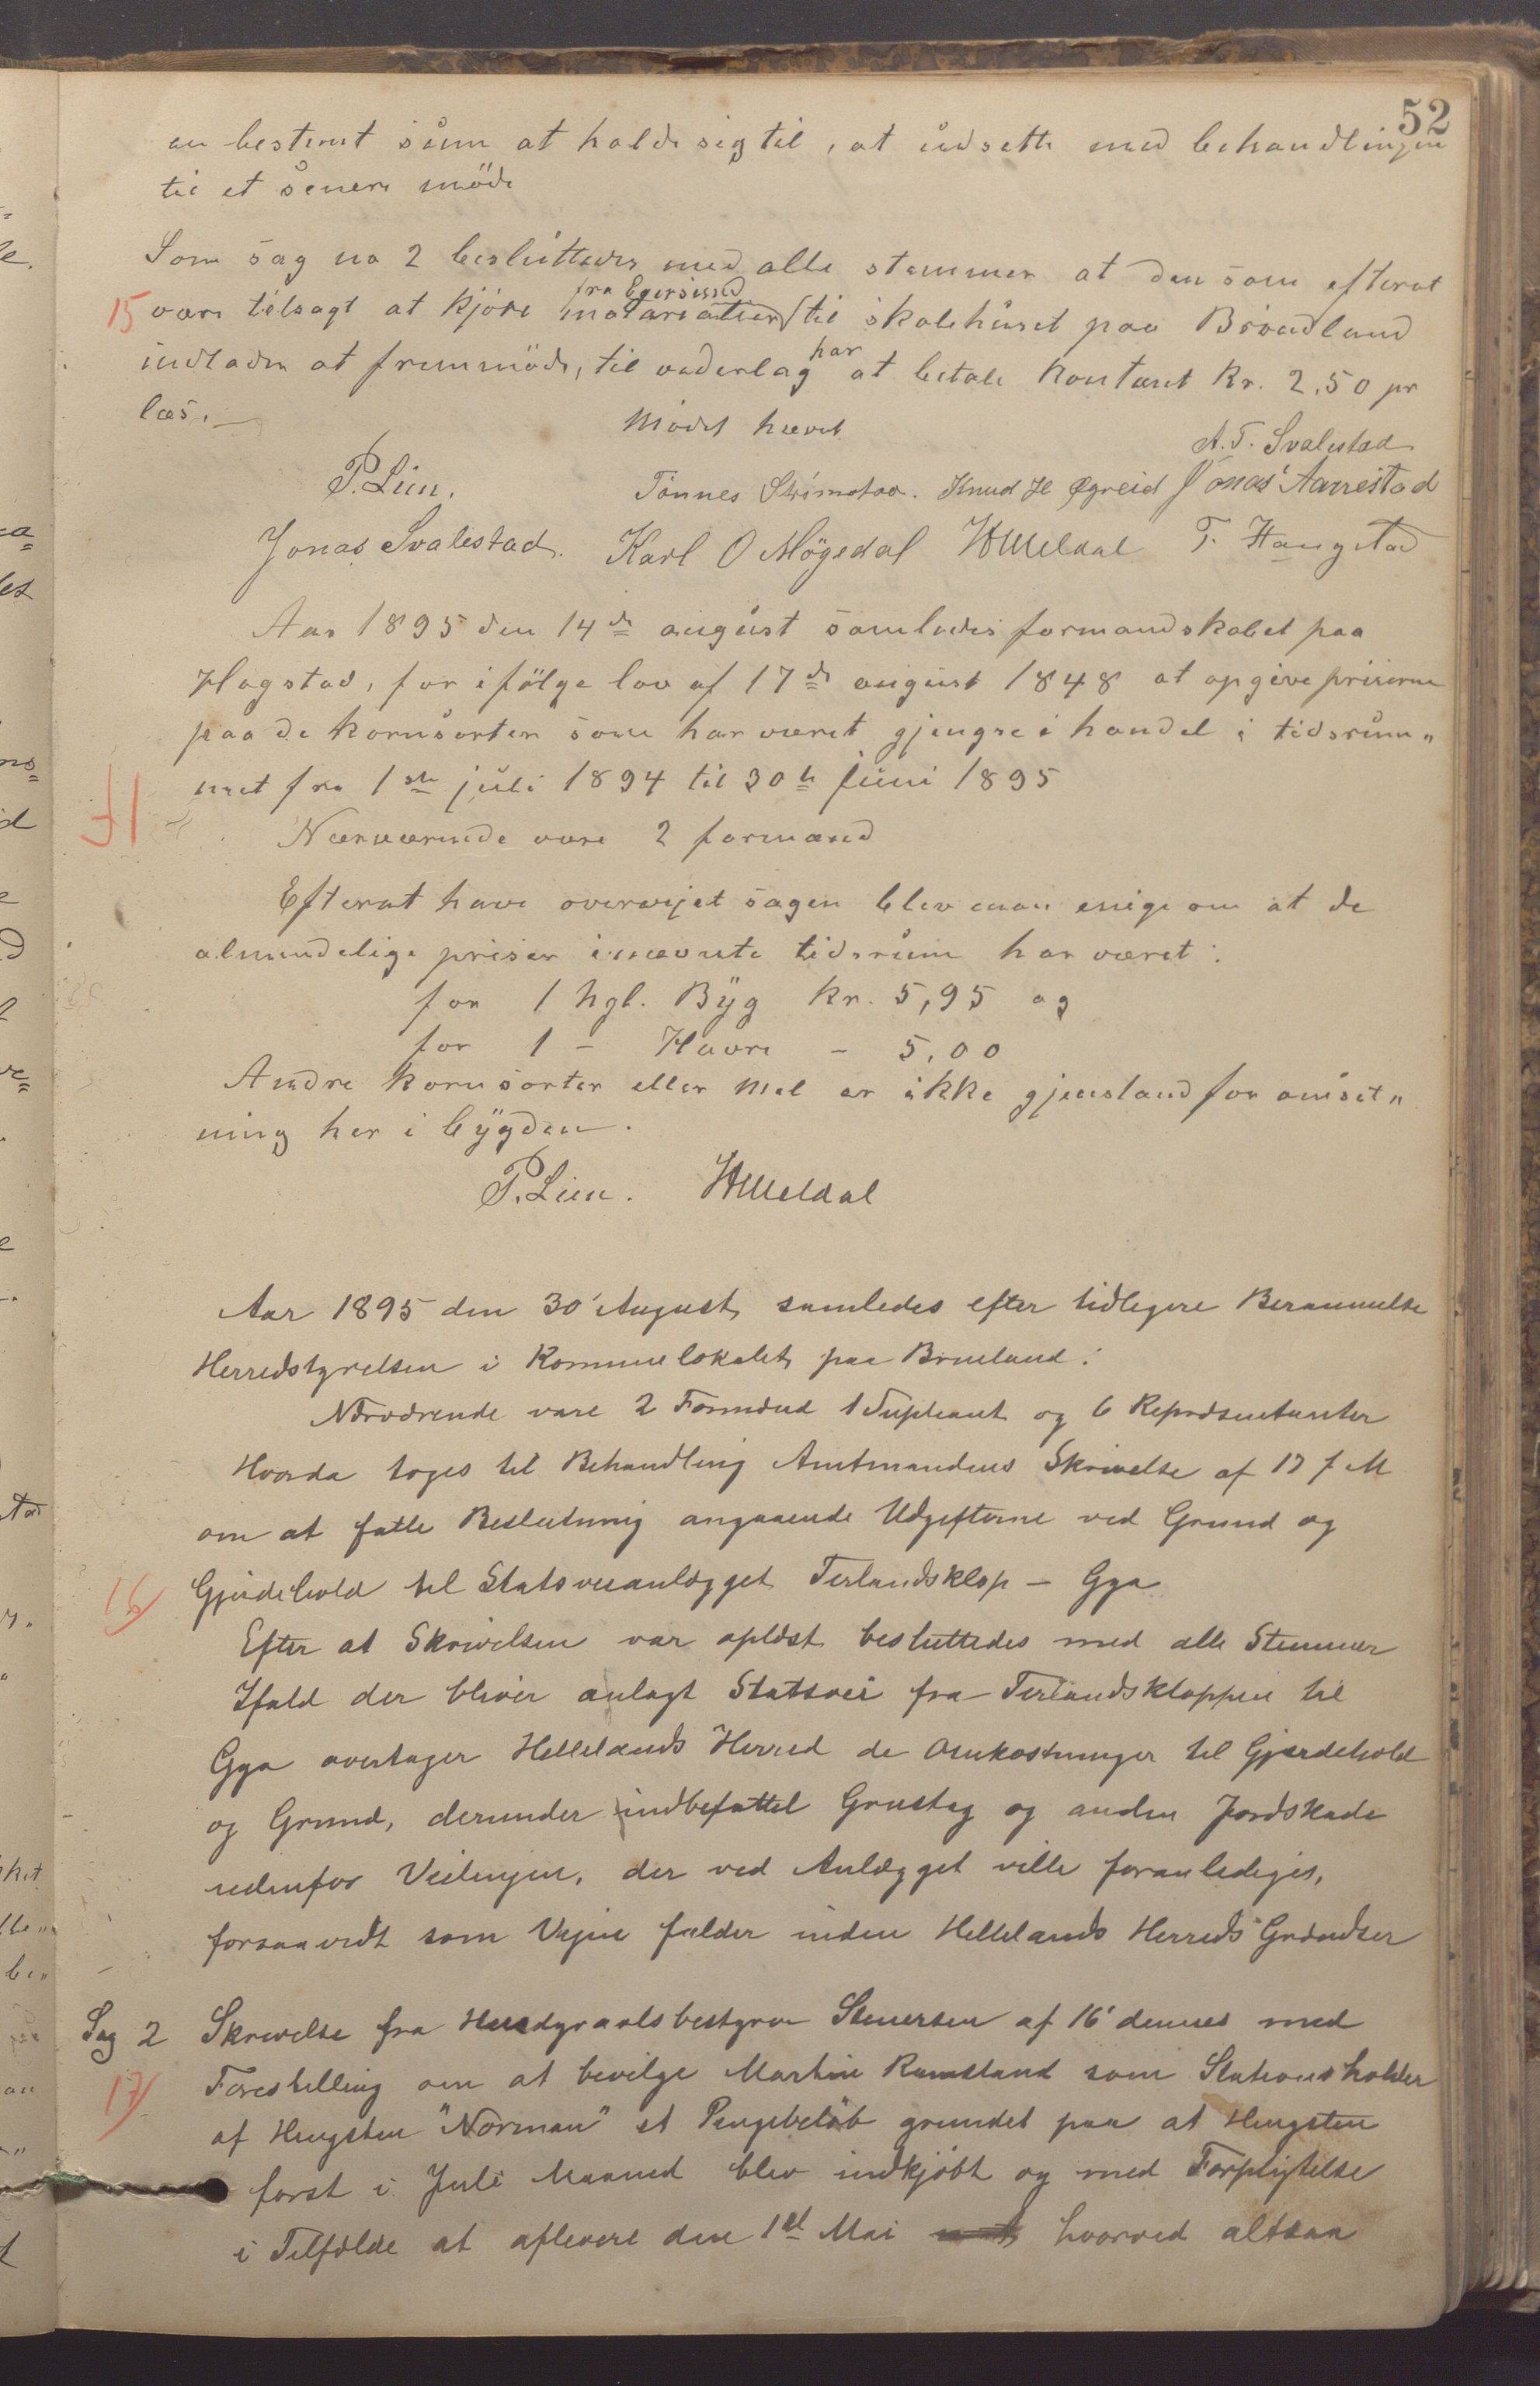 52
en bestemt sum at holde sig til, at udsette med behandlingen
til et senere möde
Som sag no 2 besluttedes med alle stemmer at den som efterat
fra Egersund
15 være tilsagt at kjöre materialier til skolehuset paa Brueland
har
undlader at fremmöde, til vederlag at betale kontant kr. 2.50 pr
læs.
Mödet hævet
A. T. Svalestad
P. Lien. Tönnes Skimotav. Knud H Øgreid Jonas Aarrestad
Jonas Svalestad. Karl O Mögedal HMeldal T. Haugstad
Aar 1895 den 14de august samledes formandskabet paa
Hagstad, for ifölge lov af 17de august 1848 at opgive priserne
paa de kornsorter som har været gjengse i handel i tidsrum„
met fra 1ste juli 1894 til 30te juni 1895
Nærværende være 2 formænd
Efterat have overveiet sagen blev man enige om at de
almindelige priser i nævnte tidsrum har været:
for 1 hgl. Byg kr. 5,95 og
for 1 - Havre - 5,00
Andre kornsorter eller mel er ikke gjenstand for omset„
ning her i bygden.
P. Lien. HMeldal
Aar 1895 den 30' August samledes efter tidligere Berammelse
Herredstyrelsen i Kommunelokalet paa Brueland.
Nærværende vare 2 Formænd 1 Supleant og 6 Repræsentanter
Hvorda toges til Behandling Amtmandens Skrivelse af 17 f M
om at fatte Beslutning angaaende Udgifterne ved Grund og
16 Gjerdehold til Statsveianlægget Terlandsklop - Gya
Efter at Skrivelsen var oplæst besluttedes med alle Stemmer
Ifald der bliver anlagt Statsvei fra Terlandskloppen til
Gya overtager Hellelands Herred de Omkostninger til Gjerdehold
og Grund, derunder indbefattet Grustag og anden Jordskade
udenfor Veilinjen, der ved Anlægget ville foranlediges,
forsaavidt som Vejen falder inden Hellelands Herreds Grændser
Sag 2 Skrivelse fra Husdyravlsbestyrer Sluersen af 16' dennes med
17 Forestilling om at bevilge Martin Ramsland som Stationsholder
af Hingsten "Norman" et Pengebelöb grundet paa at Hingsten
först i Juli Maaned blev indkjöbt og med Forpligtelse
i Tilfælde at aflevere den 1st Mai hvorved altsaa